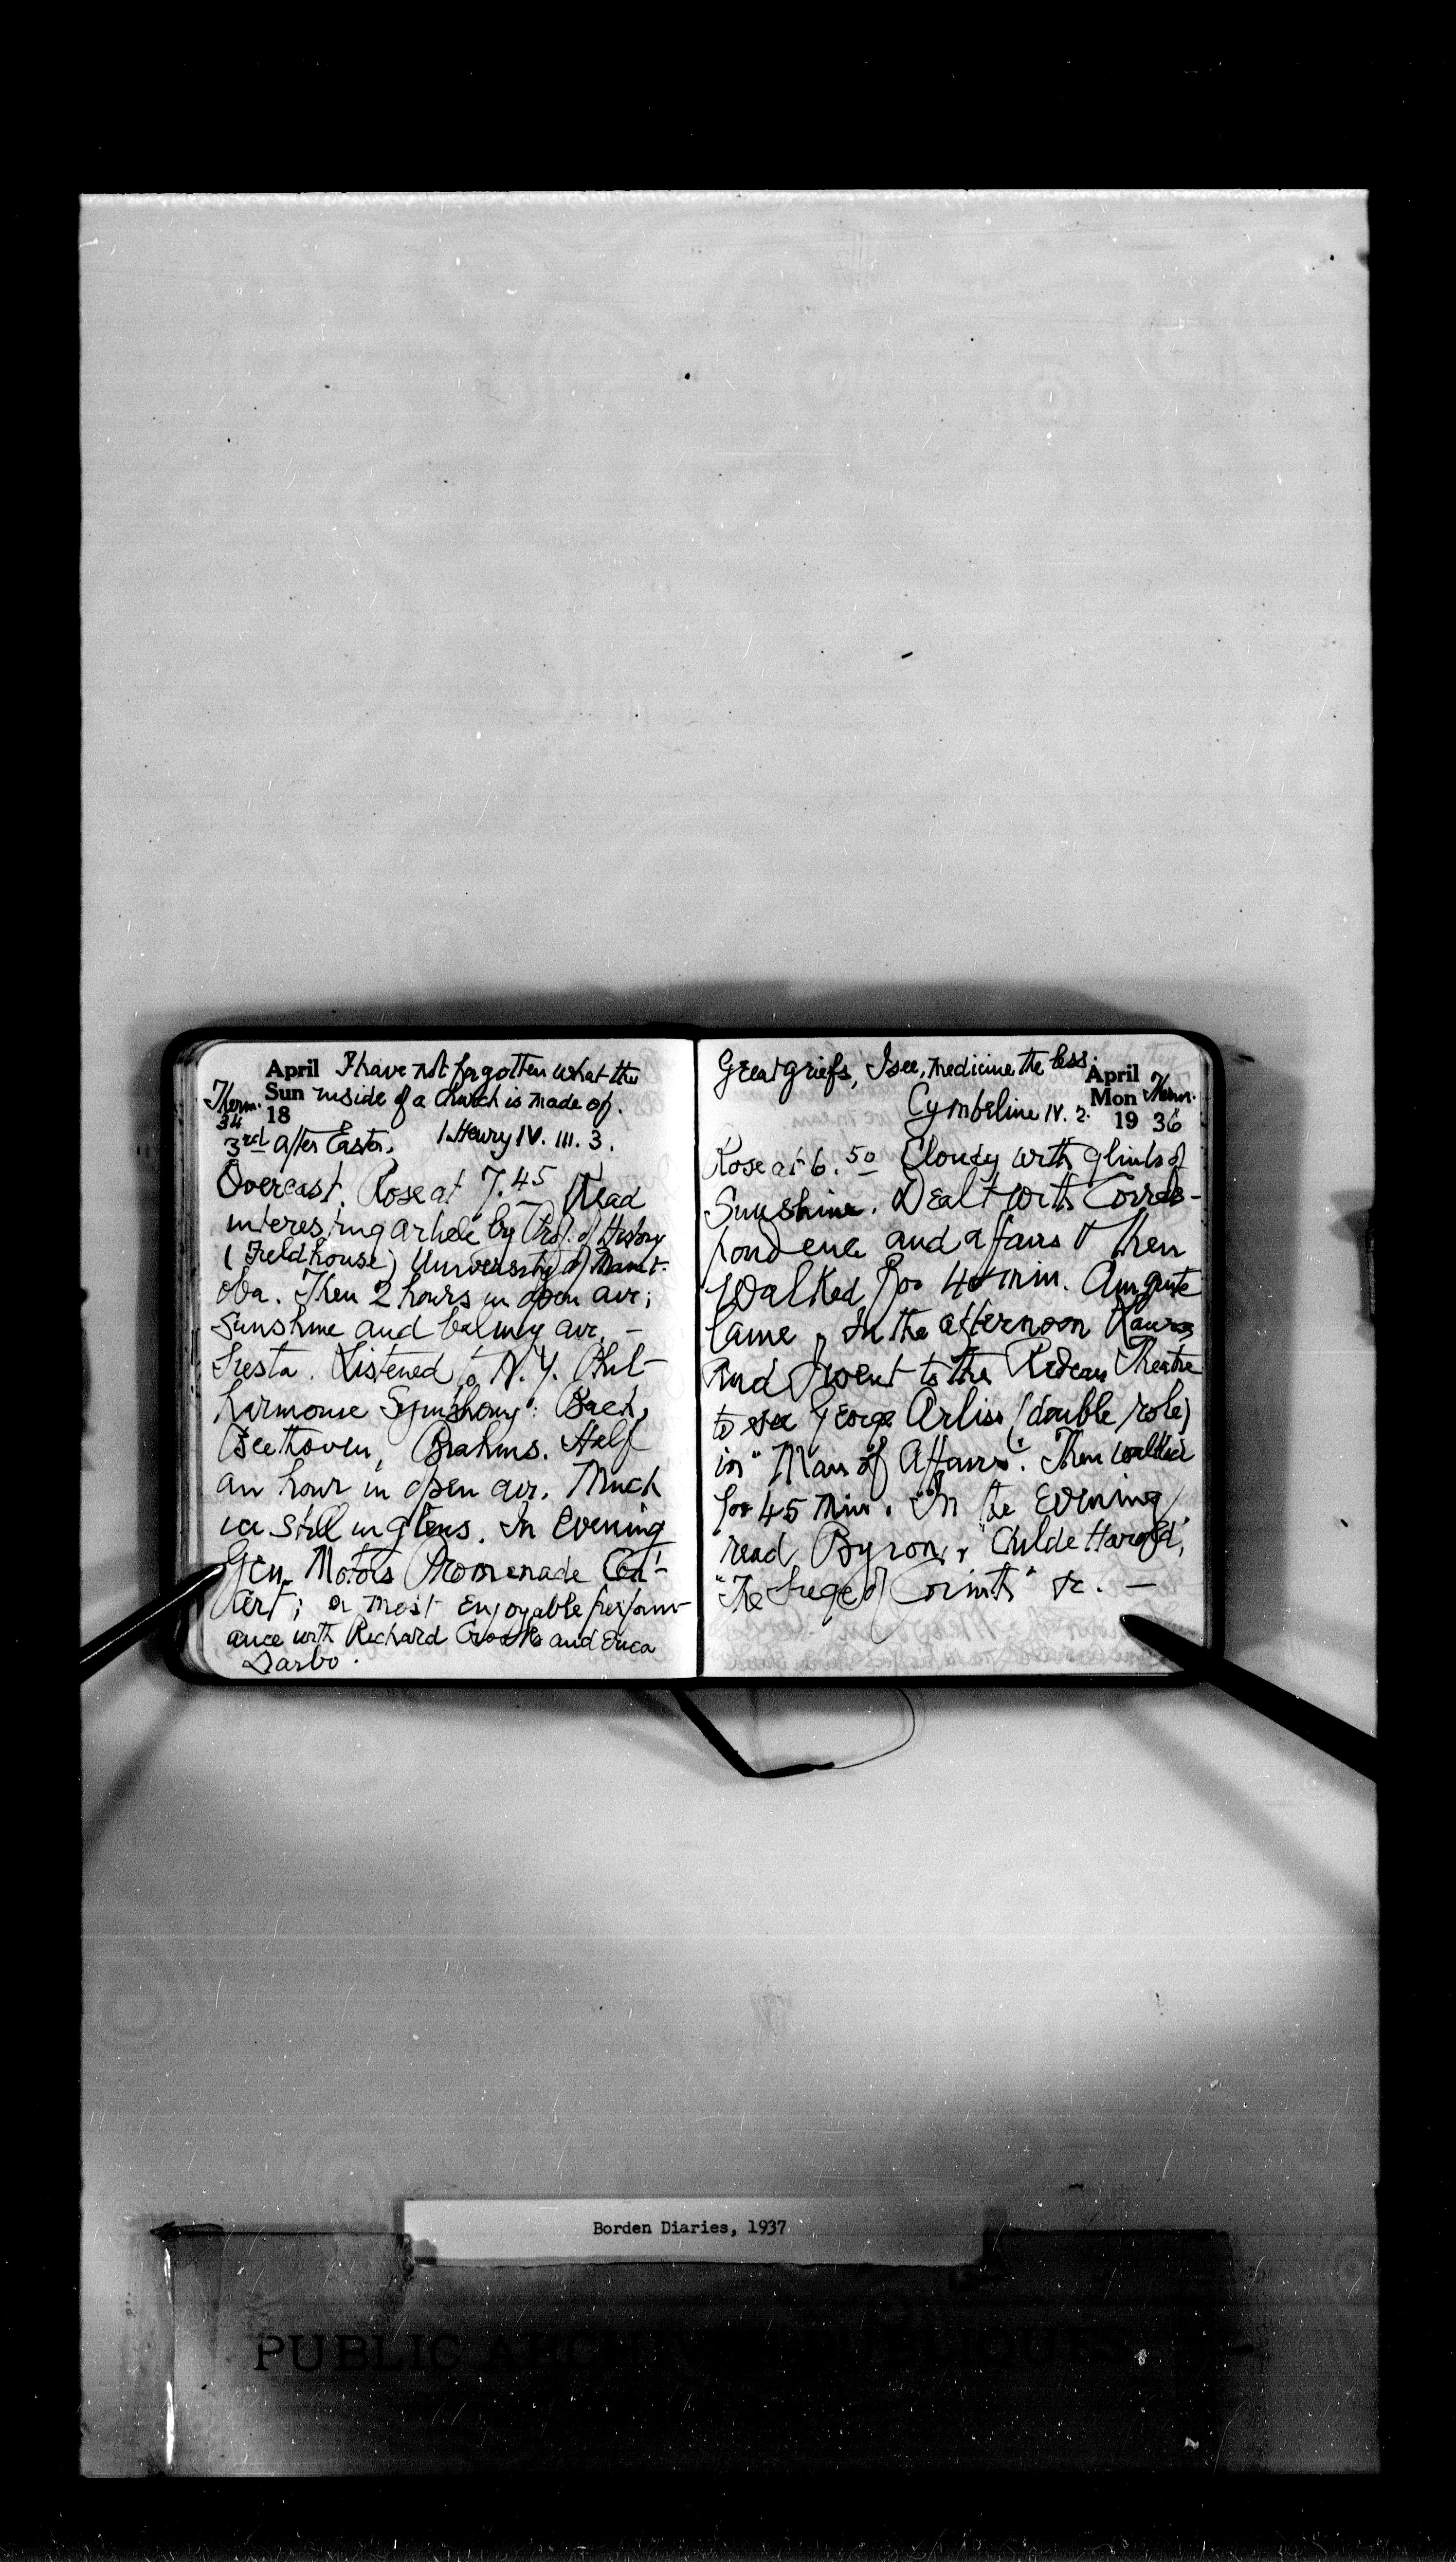 April I have not forgotten what the
Therm. Sun inside of a church is made of.
34 18
3rd after Easter. 1 Henry IV. III. 3.
Overcast. Rose at 7.45 Read
interesting article by Prof. of History
(Fieldhouse) University of Manit-
oba. Then 2 hours in open air;
Sunshine and balmy air. —
Siesta. Listened to N.Y. Phil-
harmonic Symphony: Bach,
Beethoven, Brahms. Half
an hour in open air. Much
ice still in glens. In Evening
Gen. Motors Promenade Con-
cert; a most enjoyable perform-
ance with Richard Crooks and Erica
Darbo.
Great griefs, I see, medicine the less. April
Cymbeline IV. 2. Mon Therm.
19 36
Rose at 6.50 Cloudy with glints of
Sunshine. Dealt with Corres-
pondence and affairs & then
Walked for 40 min. Am quite
lame. In the afternoon Laura
and I went to the Rideau Theatre
to see George Arliss (double role)
in "Man of Affairs". Then walked
for 45 min. In the Evening
read Byron, "Childe Harold",
"The Siege of Corinth" &c. —
Borden Diaries, 1937
PUBLIC ARCHIVES PUBLIQUES